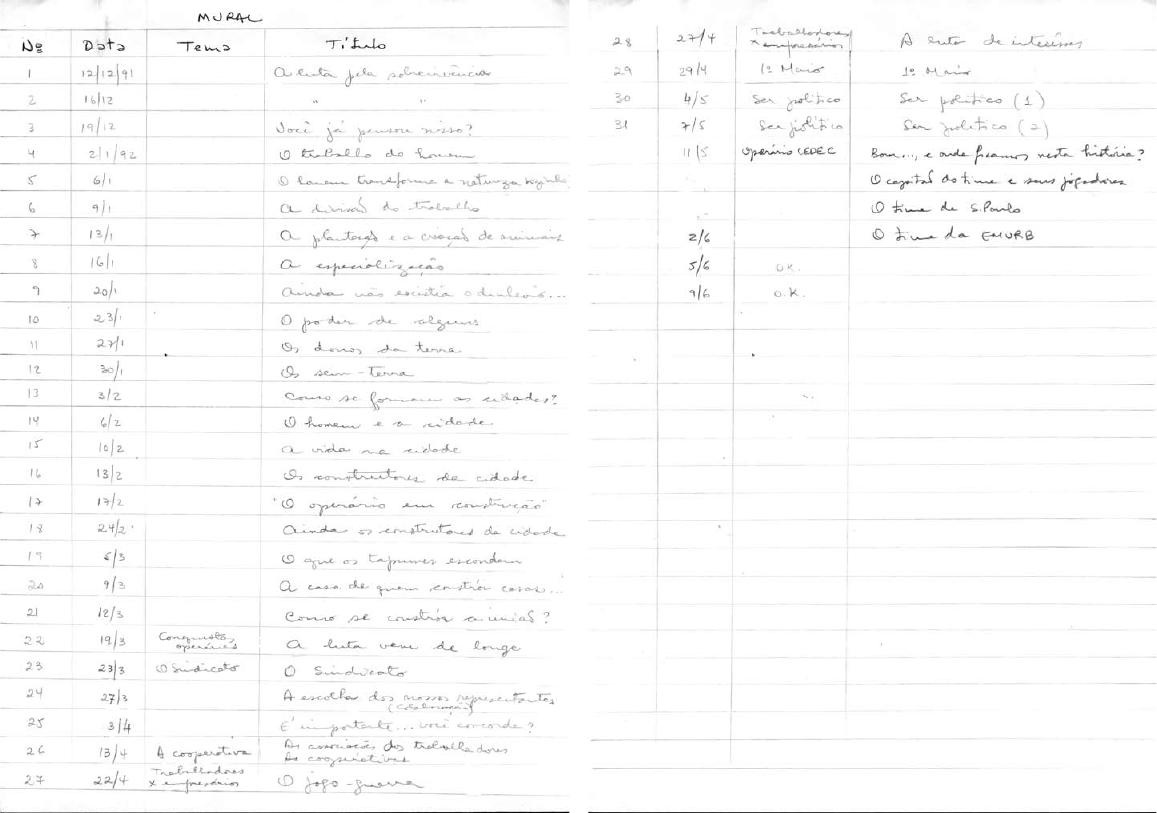 MURAL
Nº Data Tema Título
1 12/12/91 A luta pela sobrevivência
2 16/12 " "
3 19/12 Você já pensou nisso?
4 2/1/92 O trabalho do homem
5 6/1 O homem transforma a natureza
6 9/1 A divisão do trabalho
7 13/1 A plantação e a criação de animais
8 16/1 A especialização
9 20/1 Ainda não existia o dinheiro...
10 23/1 O poder de alguns
11 27/1 Os donos da terra
12 30/1 Os sem-terra
13 3/2 Como se formam as cidades?
14 6/2 O homem e a cidade
15 10/2 A vida na cidade
16 13/2 Os construtores da cidade
17 17/2 "O operário em construção"
18 24/2 Ainda os construtores da cidade
19 5/3 O que os tapumes escondem
20 9/3 A casa de quem constrói casas...
21 12/3 Como se constrói a união?
22 19/3 Conquistas operárias A luta vem de longe
23 23/3 O Sindicato O Sindicato
24 27/3 A escolha dos nossos representantes
25 3/4 É importante... você concorda?
26 13/4 A cooperativa As associações dos trabalhadores
As cooperativas
27 22/4 Trabalhadores x empresários O jogo-guerra
28 27/4 Trabalhadores x empresários A luta de interesses
29 29/4 1º Maio 1º Maio
30 4/5 Ser político Ser político (1)
31 7/5 Ser político Ser político (2)
11/5 Operário CEDEC Bom..., e onde ficamos nesta história?
O capitão do time e seus jogadores
O time de S. Paulo
2/6 O time da EMURB
5/6 O.K.
9/6 O.K.